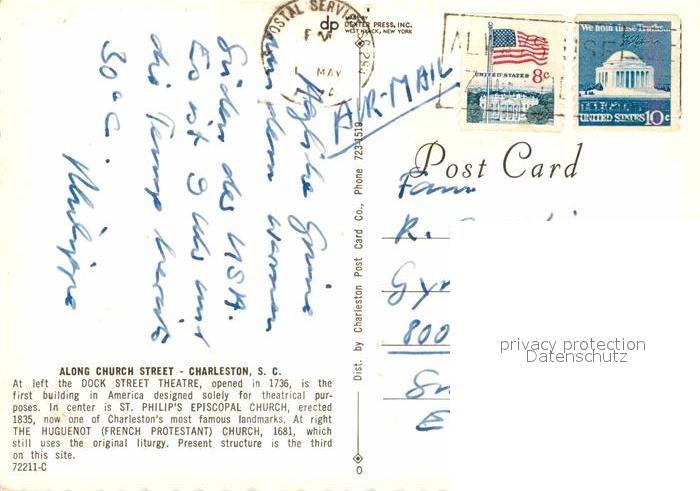 POSTAL SERVICE
PM
MAY
dp
MADE BY
DEXTER PRESS, INC.
WEST NYACK, NEW YORK
UNITED STATES 8c
We hold these Truths...
UNITED STATES 10c
AIR-MAIL
Post Card
Fam
R.
Gyr
800
E
privacy protection
Datenschutz
Herzliche Grüsse
aus dem warmen
Süden der USA.
Es ist 9 Uhr und
die Temp. bereits
30° C.
Philippe
Dist. by Charleston Post Card Co., Phone 723-1519
ALONG CHURCH STREET - CHARLESTON, S. C.
At left the DOCK STREET THEATRE, opened in 1736, is the
first building in America designed solely for theatrical pur-
poses. In center is ST. PHILIP'S EPISCOPAL CHURCH, erected
1835, now one of Charleston's most famous landmarks. At right
THE HUGUENOT (FRENCH PROTESTANT) CHURCH, 1681, which
still uses the original liturgy. Present structure is the third
on this site.
72211-C